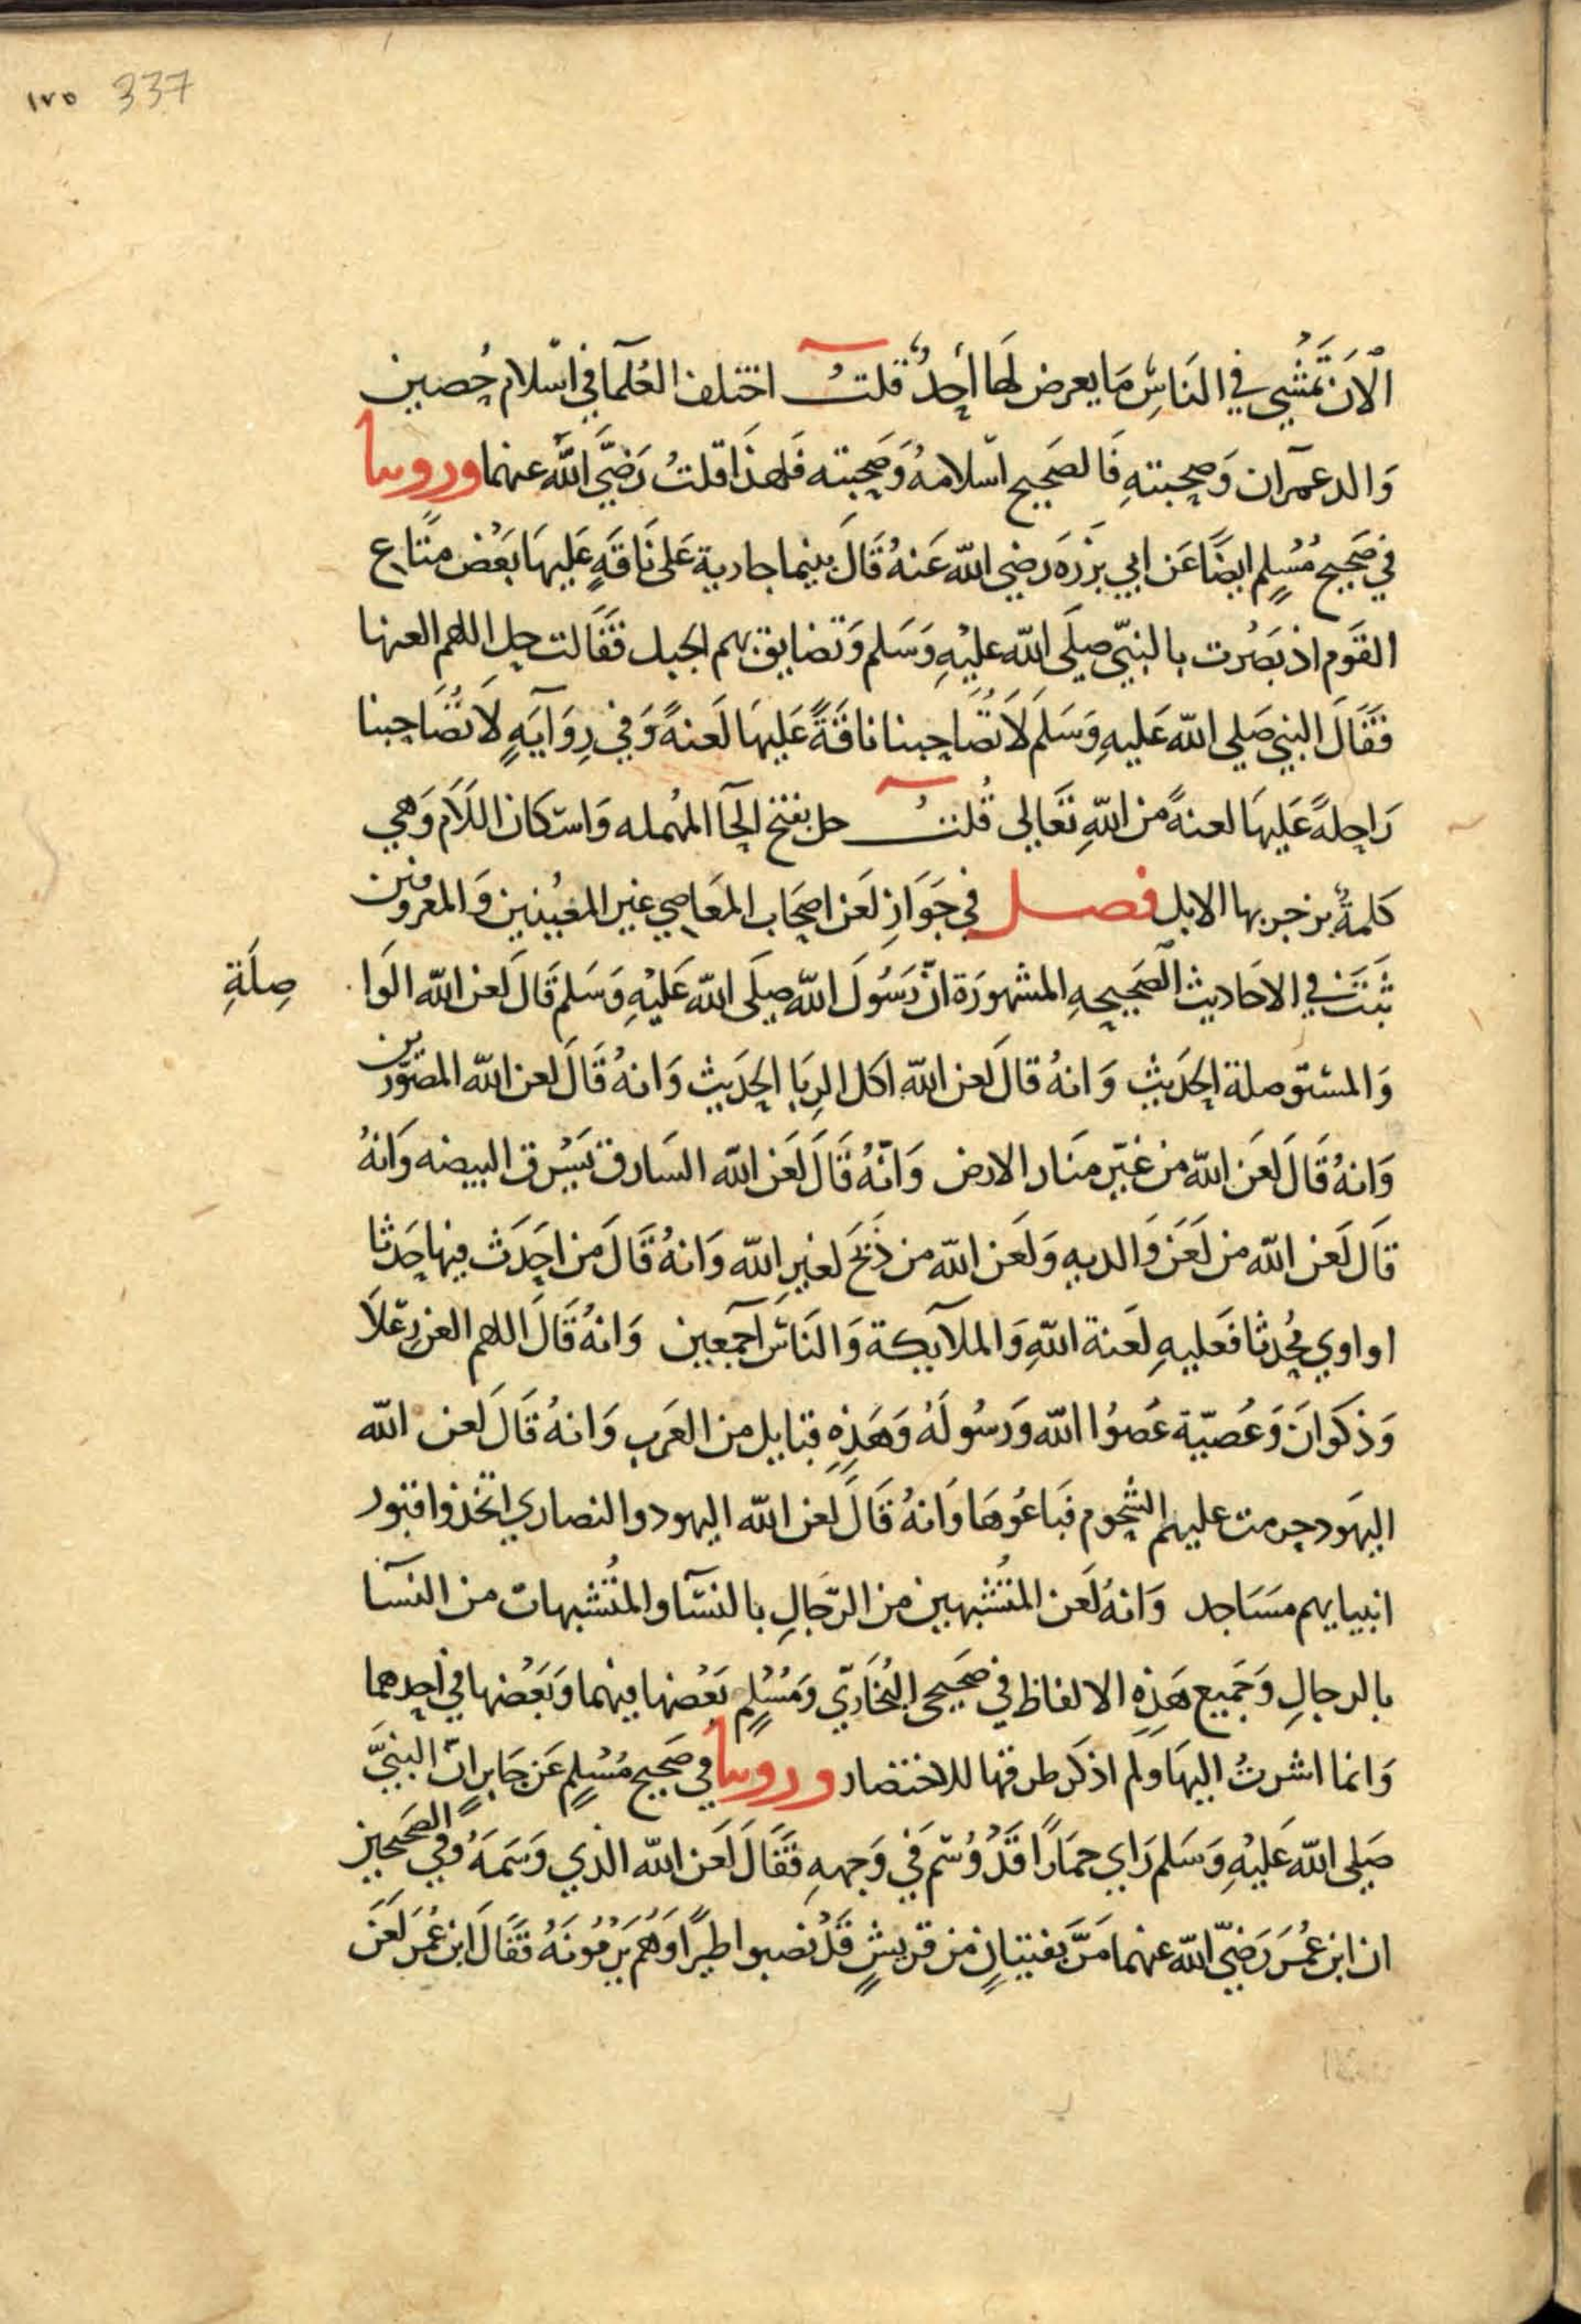 ١٧٥ 337
الْآنَ تَمْشِي في النَاسِ مَا يعرض لَها أحدٌ قلتُ اختلف العُلَما في اسْلام حُصين
وَالد عمران وَصحبتهِ فَالصَحيح اسْلامهُ وَصحبته فَلهذَا قلتُ رَضيَ اللهُ عنهما وروينا
في صَحيح مُسْلِم ايضًا عَن ابي بَرْزَه رَضي الله عَنهُ قَالَ بينما جارية عَلى نَاقَةٍ عَليهَا بَعْض مَتَاع
القَوم اذ بَصُرت بالنبيّ صلَى الله عليْهِ وَسَلم وَتضايق بهم الجبل فقَالت حل اللهم العنها
فقَالَ النبي صَلى الله عَليهِ وَسَلَم لَا تُصَاحبنا ناقَةً عَليهَا لَعنةً وَفي رِوَايَهٍ لَا تُصَاحبنا
رَاحلةً عَليهَا لعنةً من اللهِ تعَالى قُلتُ حل بفتح الحآ المهُمله وَاسْكان اللَام وَهي
كَلمةٌ يزجر بها الابل فصل في جَوَازِ لَعن اصحَاب المعَاصي غير المعَيْنين وَالمعروفين
ثَبتَت في الاحَاديث الصَحيحهِ المشهورَة انّ رَسُولَ الله صلَى الله عَليْهِ وَسَلم قَالَ لَعن الله الوَا صِلَةِ
وَالمسْتوصلة الحَديث وَانهُ قالَ لَعن الله اكل الرِبَا الحَديث وَانهُ قَالَ لَعن الله المصَوّرين
وَانهُ قَالَ لَعَن الله من غيّر مَنَار الارض وَانّهُ قَالَ لَعَن الله السَارق يَسْرق البيضه وَانهُ
قَالَ لَعن الله من لَعَن وَالديهِ وَلَعَن الله من ذَبَحَ لغيرِ الله وَانهُ قَالَ مَن احَدَث فيها حَدثا
او اوي مُحْدثا فَعليهِ لَعنة اللهِ وَالملآيكة وَالنَاس اجمَعين وَانهُ قَالَ اللهم العن رِعْلَا
وَذكوَانَ وَعُصَيّة عَصُوُا الله وَرسُولَهُ وَهَذِهِ قبايل من العَرب وَانهُ قَالَ لَعن الله
اليهَود حرمت عليهم الشُحوم فبَاعُوهَا وَانهُ قَالَ لَعن الله اليهود والنصاري اتخذوا قبور
انبيايهم مسَاجد وَانهُ لَعن المتُشبهين من الرّجَالِ بالنسَآ والمتُشبهات من النسَآ
بالرجالِ وَجَميع هَذِهِ الالفاظ في صَحيحي البُخَاريّ وَمُسْلِم بَعْضها فيهما وَبَعْضها في احدهما
وَانما اشرتُ اليهَا ولم اذكر طرقها للاختصار وروينا في صَحيح مُسْلِم عَن جَابرٍ انّ النبيَّ
صَلى الله عَليْهِ وَسَلم رَاي حمَارًا قَدْ وُسّم في وَجههِ فقَالَ لَعَن الله الذي وَسَمَهُ وَفي الصَحيحين
ان ابن عُمَر رَضيَ الله عنهما مَرَّ بفتيَانٍ من قريشٍ قَدْ نصبوا طيرًا وَهُم يَرْمُونَهُ فقَالَ ابن عُمَر لَعَن